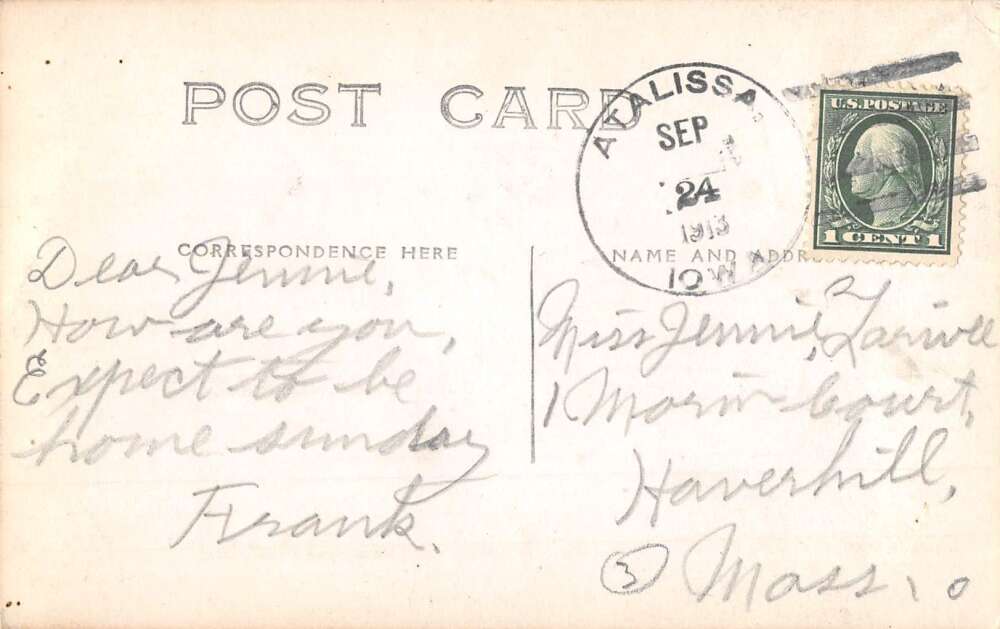 POST CARD
ATALISSA
SEP
24
1913
IOWA
U.S. POSTAGE
1 CENT 1
CORRESPONDENCE HERE
NAME AND ADDR
Dear Jennie,
How are you,
Expect to be
home sunday
Frank.
Miss Jennie
1 Morin Court,
Haverhill,
3 Mass.